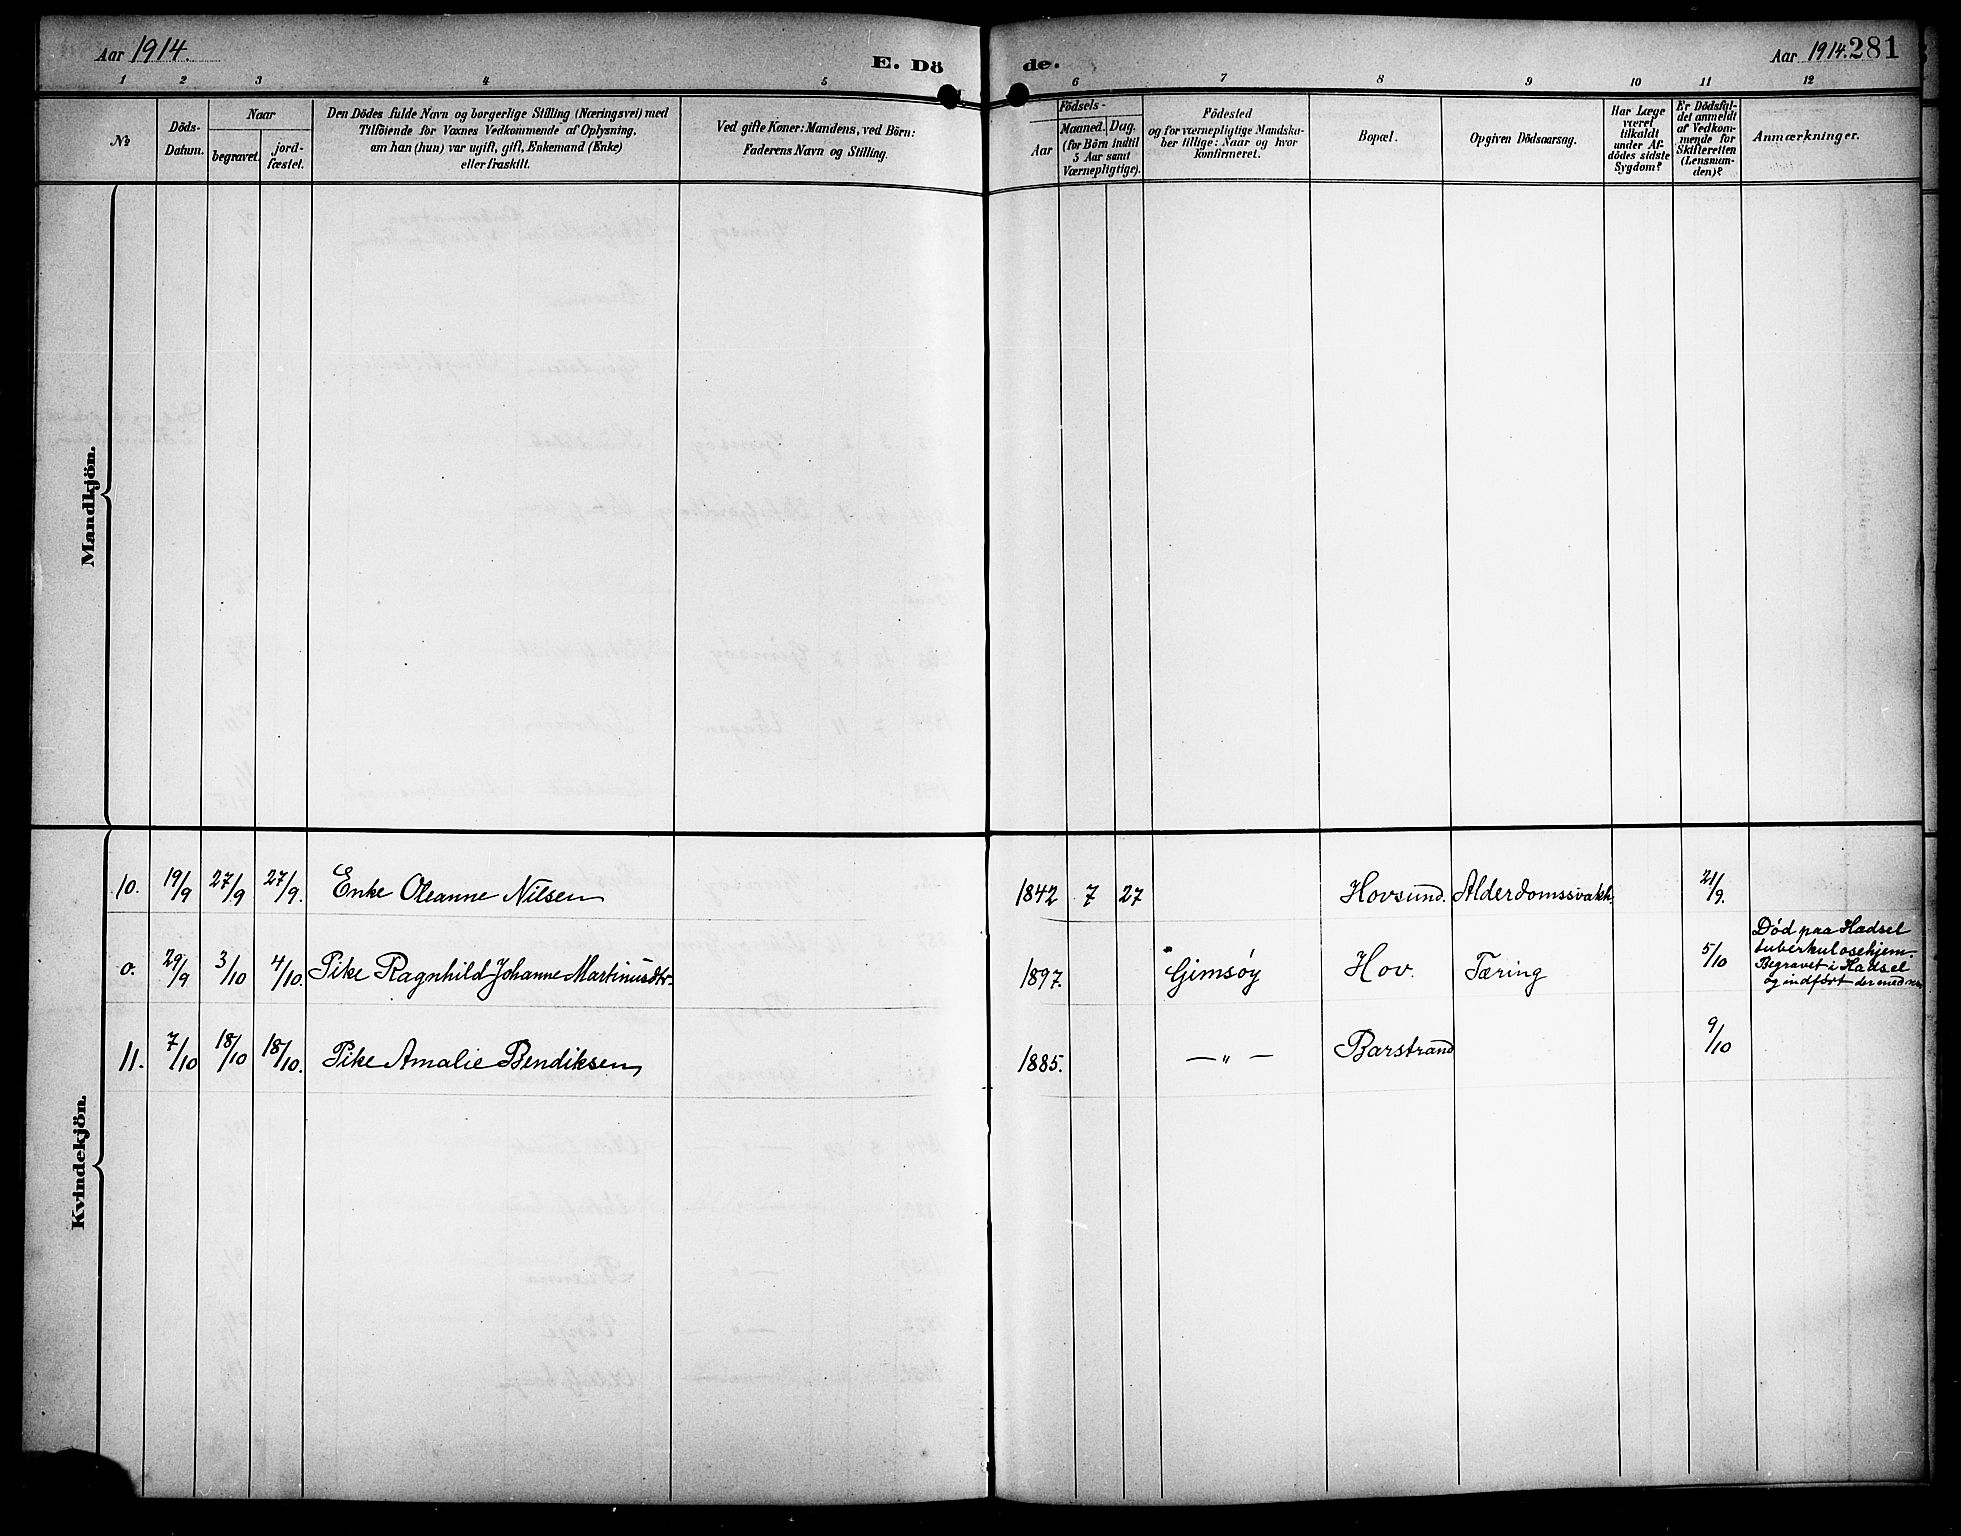 Aar 1914.
E. Dö
de.
Aar 1914. 281
1 2 3 4 5 6 7 8 9 10 11 12
№
Döds-
Datum.
Naar
begravet.
jord-
fæstet.
Den Dödes fulde Navn og borgerlige Stilling (Næringsvei) med
Tilföiende for Voxnes Vedkommende af Oplysning,
om han (hun) var ugift, gift, Enkemand (Enke)
eller fraskilt.
Ved gifte Koner: Mandens, ved Börn:
Faderens Navn og Stilling.
Födsels-
Aar
Maaned. Dag.
(for Börn indtil
5 Aar samt
Værnepligtige).
Födested
og for værnepligtige Mandska-
ber tillige: Naar og hvor
konfirmeret.
Bopæl.
Opgiven Dödsaarsag.
Har Læge
været
tilkaldt
under Af-
dödes sidste
Sygdom?
Er Dödsfal-
det anmeldt
af Vedkom-
mende for
Skifteretten
(Lensman-
den)?
Anmærkninger.
Mandkjön.
Kvindekjön.
10. 19/9 27/9 27/9. Enke Oleanne Nilsen 1842 7 27 Hovsund. Alderdomssvakh. 21/9.
0. 29/9 3/10 4/10. Pike Ragnhild Johanne Martinusdtr. 1897. Gimsøy Hov. Tæring 5/10
Død paa Hadsel
tuberkulosehjem.
Begravet i Hadsel
og indført der med
11. 7/10 18/10 18/10. Pike Amalie Bendiksen 1885. — „ — Barstrand 9/10